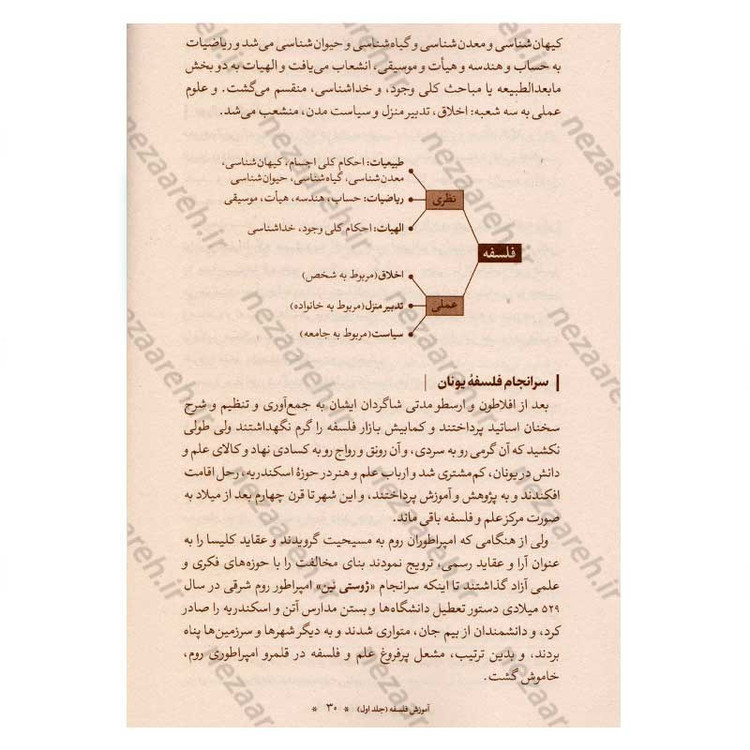 کیهان‌شناسی و معدن‌شناسی و گیاه‌شناسی و حیوان‌شناسی می‌شد و ریاضیات
به حساب و هندسه و هیأت و موسیقی، انشعاب می‌یافت و الهیات به دو بخش
مابعدالطبیعه یا مباحث کلی وجود، و خداشناسی، منقسم می‌گشت. و علوم
عملی به سه شعبه: اخلاق، تدبیر منزل و سیاست مدن، منشعب می‌شد.
فلسفه
نظری
طبیعیات: احکام کلی اجسام، کیهان‌شناسی،
معدن‌شناسی، گیاه‌شناسی، حیوان‌شناسی
ریاضیات: حساب، هندسه، هیأت، موسیقی
الهیات: احکام کلی وجود، خداشناسی
عملی
اخلاق(مربوط به شخص)
تدبیر منزل(مربوط به خانواده)
سیاست(مربوط به جامعه)
سرانجام فلسفهٔ یونان
بعد از افلاطون و ارسطو مدتی شاگردان ایشان به جمع‌آوری و تنظیم و شرح
سخنان اساتید پرداختند و کمابیش بازار فلسفه را گرم نگهداشتند ولی طولی
نکشید که آن گرمی رو به سردی، و آن رونق و رواج رو به کسادی نهاد و کالای علم و
دانش در یونان، کم‌مشتری شد و ارباب علم و هنر در حوزهٔ اسکندریه، رحل اقامت
افکندند و به پژوهش و آموزش پرداختند، و این شهر تا قرن چهارم بعد از میلاد به
صورت مرکز علم و فلسفه باقی ماند.
ولی از هنگامی که امپراطوران روم به مسیحیت گرویدند و عقاید کلیسا را به
عنوان آرا و عقاید رسمی، ترویج نمودند بنای مخالفت را با حوزه‌های فکری و
علمی آزاد گذاشتند تا اینکه سرانجام «ژوستی نین» امپراطور روم شرقی در سال
۵۲۹ میلادی دستور تعطیل دانشگاه‌ها و بستن مدارس آتن و اسکندریه را صادر
کرد، و دانشمندان از بیم جان، متواری شدند و به دیگر شهرها و سرزمین‌ها پناه
بردند، و بدین ترتیب، مشعل پرفروغ علم و فلسفه در قلمرو امپراطوری روم،
خاموش گشت.
آموزش فلسفه (جلد اول) * ۳۰ *
nezaareh.ir
nezaareh.ir
nezaareh.ir
nezaareh.ir
nezaareh.ir
nezaareh.ir
nezaareh.ir
nezaareh.ir
nezaareh.ir